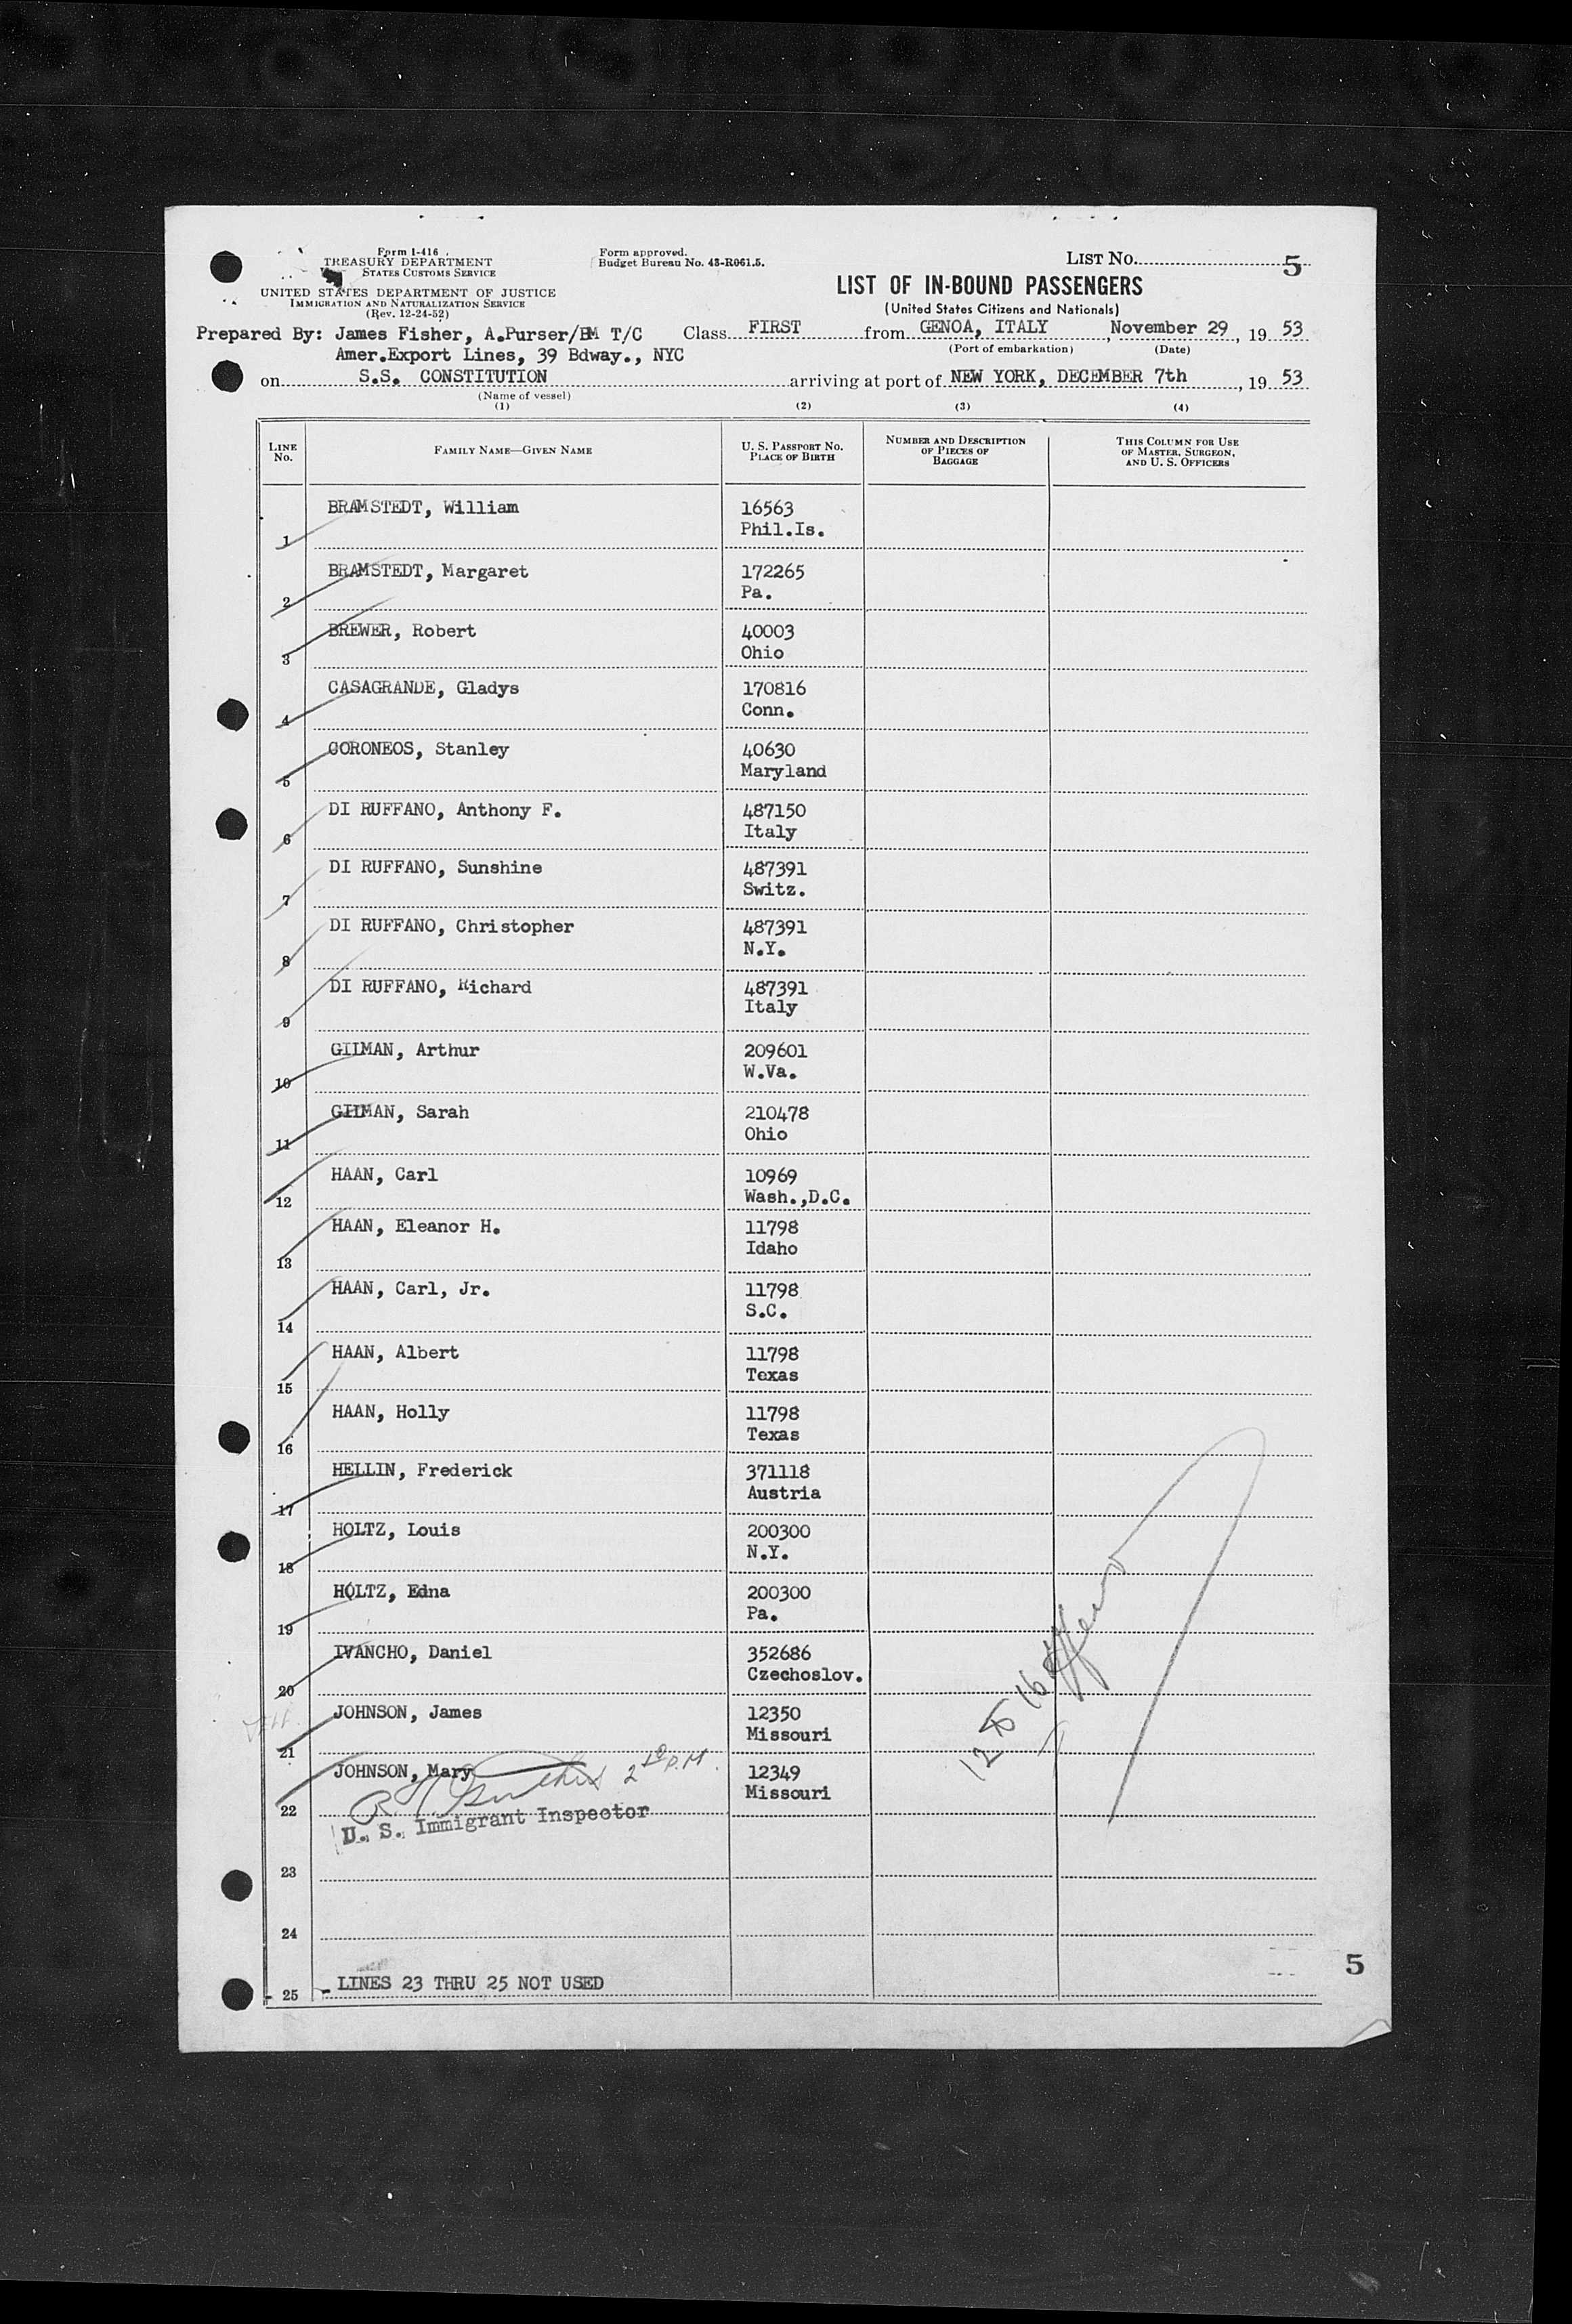 Form I-416
TREASURY DEPARTMENT
STATES CUSTOMS SERVICE
UNITED STATES DEPARTMENT OF JUSTICE
IMMIGRATION AND NATURALIZATION SERVICE
(Rev. 12-24-52)
Form approved.
Budget Bureau No. 43-R061.5.
LIST No. 5
LIST OF IN-BOUND PASSENGERS
(United States Citizens and Nationals)
Prepared By: James Fisher, A.Purser/BM T/C Class FIRST from GENOA, ITALY, November 29, 19 53
(Port of embarkation) (Date)
Amer.Export Lines, 39 Bdway., NYC
on S.S. CONSTITUTION arriving at port of NEW YORK, DECEMBER 7th, 19 53
(Name of vessel)
(1) (2) (3) (4)
LINE No. FAMILY NAME—GIVEN NAME U. S. PASSPORT No. PLACE OF BIRTH NUMBER AND DESCRIPTION OF PIECES OF BAGGAGE THIS COLUMN FOR USE OF MASTER, SURGEON, AND U. S. OFFICERS
1 BRAMSTEDT, William 16563
Phil.Is.
2 BRAMSTEDT, Margaret 172265
Pa.
3 BREWER, Robert 40003
Ohio
4 CASAGRANDE, Gladys 170816
Conn.
5 CORONEOS, Stanley 40630
Maryland
6 DI RUFFANO, Anthony F. 487150
Italy
7 DI RUFFANO, Sunshine 487391
Switz.
8 DI RUFFANO, Christopher 487391
N.Y.
9 DI RUFFANO, Richard 487391
Italy
10 GILMAN, Arthur 209601
W.Va.
11 GILMAN, Sarah 210478
Ohio
12 HAAN, Carl 10969
Wash.,D.C.
13 HAAN, Eleanor H. 11798
Idaho
14 HAAN, Carl, Jr. 11798
S.C.
15 HAAN, Albert 11798
Texas
16 HAAN, Holly 11798
Texas
17 HELLIN, Frederick 371118
Austria
18 HOLTZ, Louis 200300
N.Y.
19 HOLTZ, Edna 200300
Pa.
20 IVANCHO, Daniel 352686
Czechoslov.
21 JOHNSON, James 12350
Missouri
22 JOHNSON, Mary 12349
Missouri
2 10 P.M.
U. S. Immigrant Inspector
23
24
5
25 - LINES 23 THRU 25 NOT USED